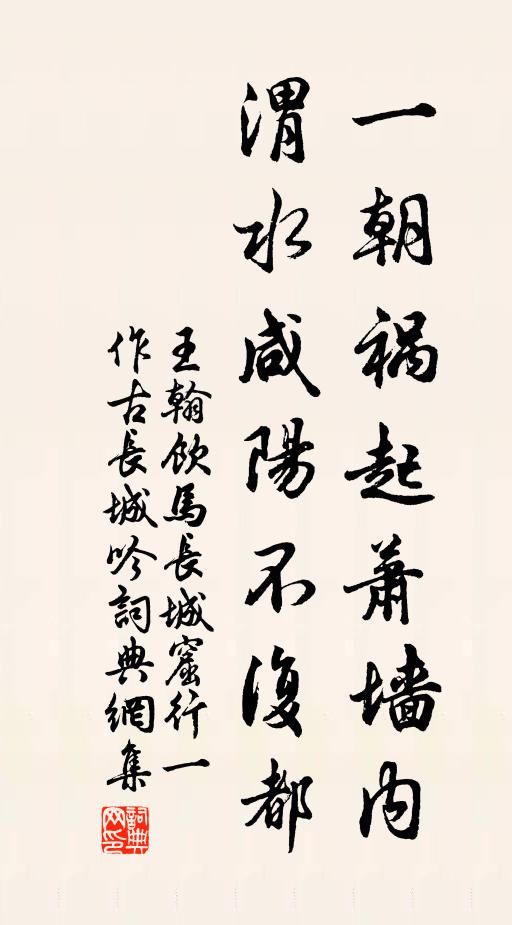 一朝祸起萧墙内
渭水咸陽不復都
王翰飲馬長城窟行一
作古長城吟詞典網集
詞典
网印